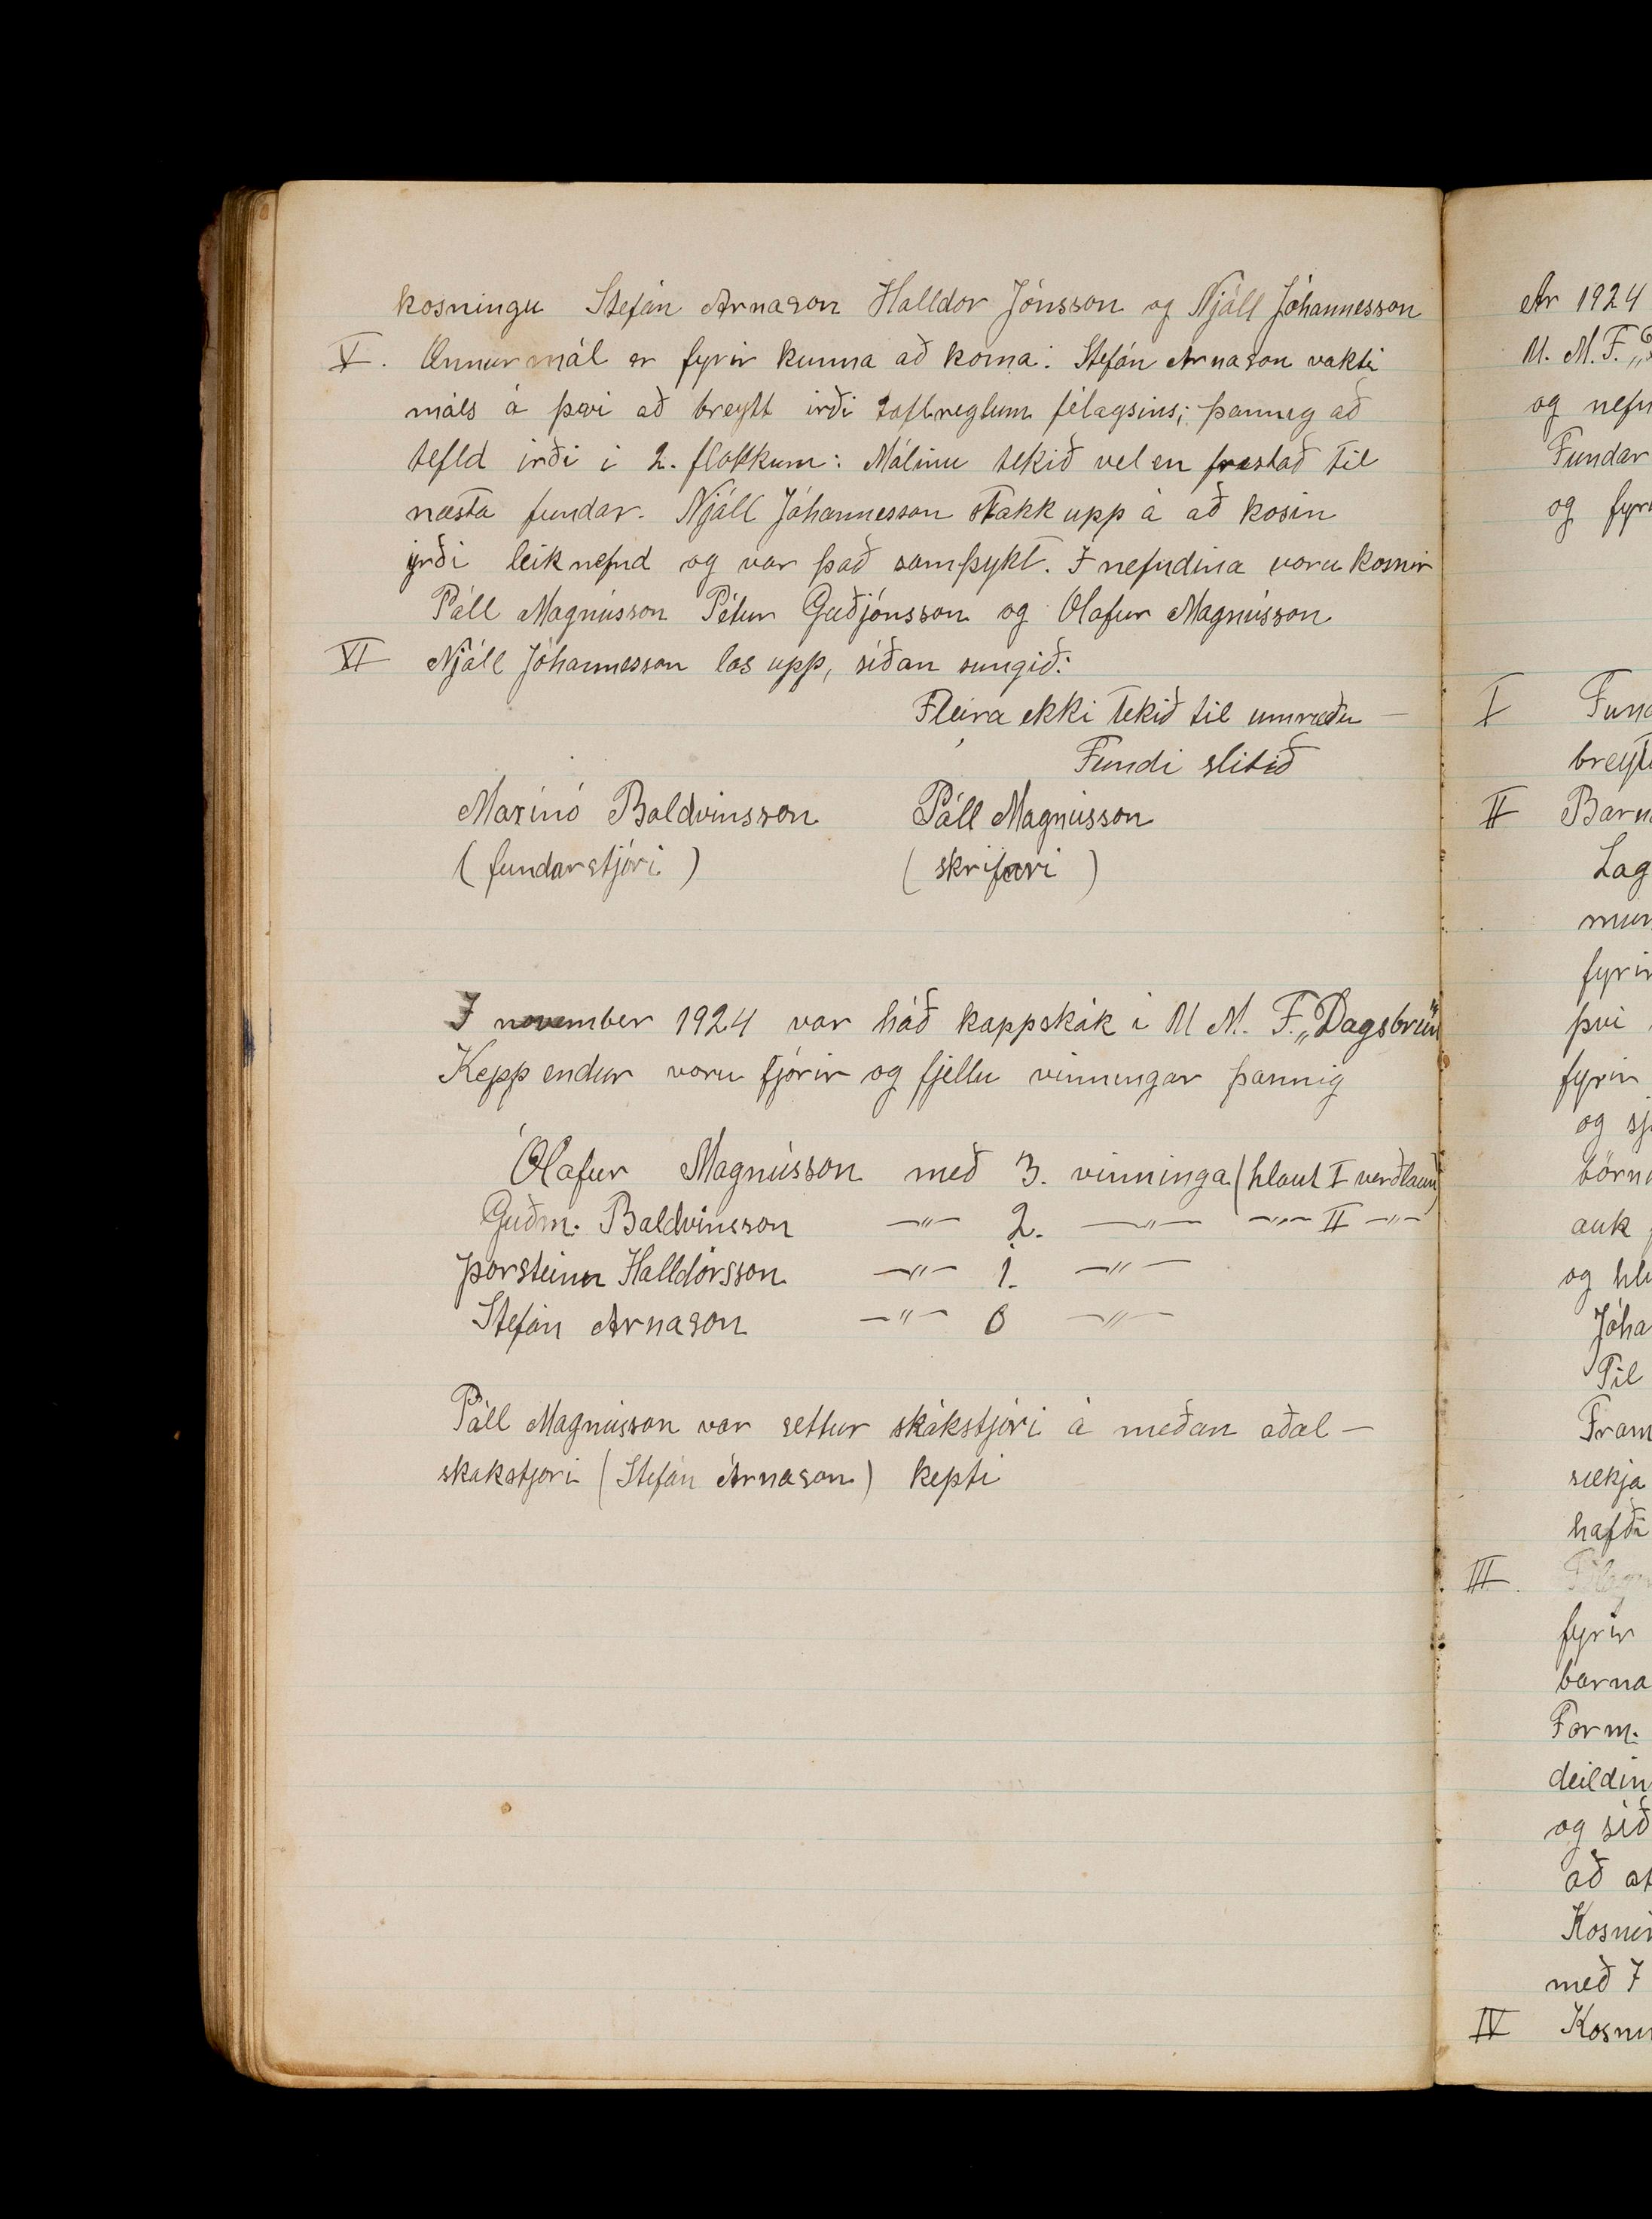 kosningu Stefán Arnason Halldor Jónsson og Njáll Jóhannesson
V. Önnur mál er fyrir kunna að koma: Stefán Arnason vakti
máls á því að breytt irði taflreglum félagsins; þannig að
tefld irði i 2. flokkum: Málinu tekið vel en frestað til
næsta fundar. Njáll Jóhannesson stakk upp á að kosin
yrði leiknefnd og var það samþykt. I nefndina voru kosnir
Páll Magnússon Pétur Guðjónsson og Olafur Magnússon
VI Njáll Jóhannesson las upp, síðan sungið:
Fleira ekki tekið til umræðu —
Fundi slitið
Marínó Baldvinsson Páll Magnússon
(fundarstjóri) (skrifari)
I november 1924 var háð kappskák i U M. F. „Dagsbrún"
Keppendur voru fjórir og fjellu vinningar þannig
Ólafur Magnússon með 3. vinninga (hlaut I verðlaun)
Guðm. Baldvinsson —"— 2. —"— —"— II —"—
Þorsteinn Halldórsson —"— 1. —"—
Stefán Arnason —"— 0 —"—
Páll Magnússon var settur skákstjóri á meðan aðal-
skakstjori (Stefán Árnason) kepti
Ar 1924
U. M. F. „
og nefn
Fundar
og fyri
I Fund
breyt
II Barn
Lag
mun
fyrir
því
fyrir
og sj
börn
auk
og hl
Jóha
Til
Fram
sækja
hafði
III.
fyrir
barna
Form.
deildin
og síð
að at
Kosnir
með 7
IV Kosni